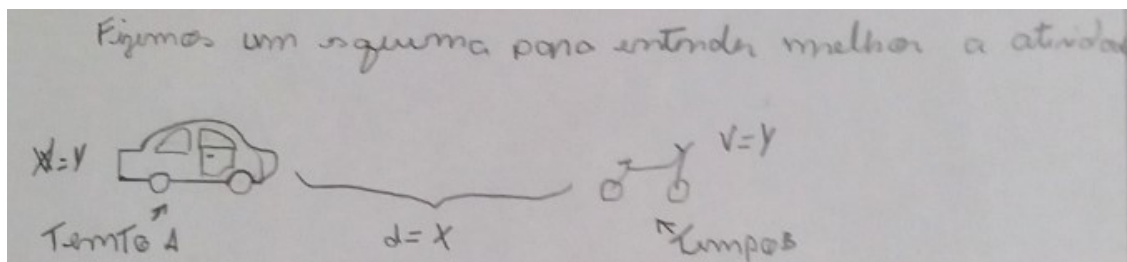 Fizemos um esquema para entender melhor a atividad
V=Y
V=Y
d=X
Tempo B